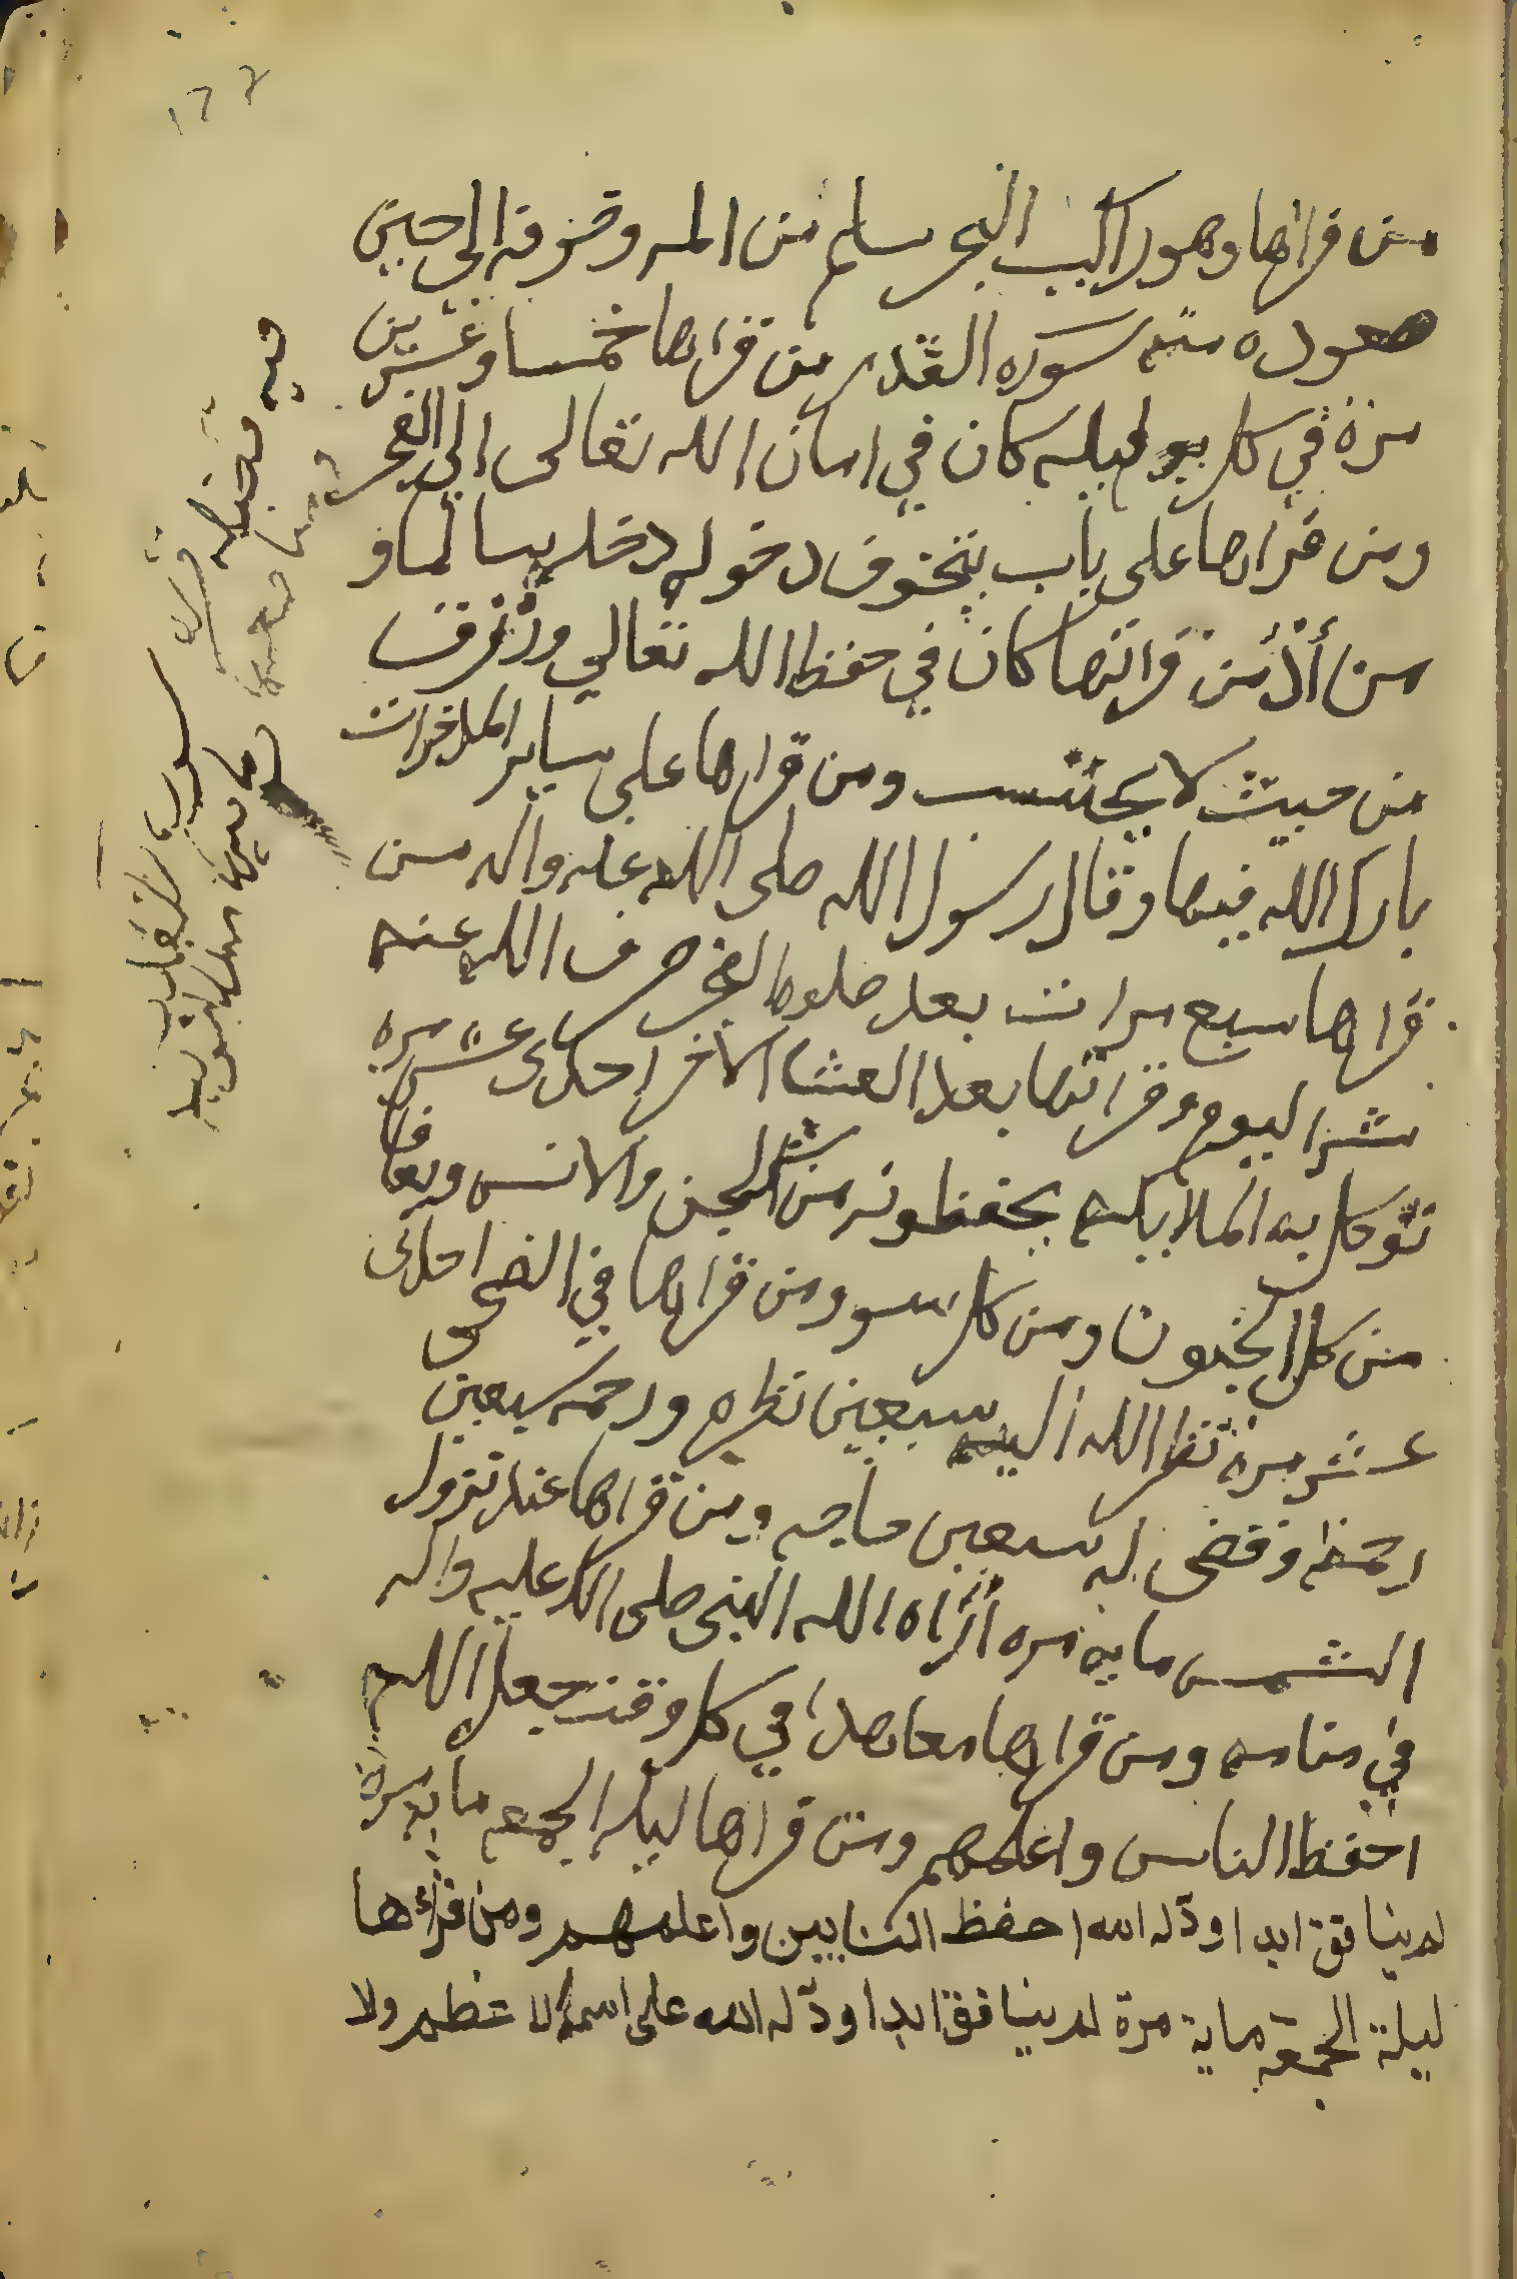 من قراها وهو راكب البحر سلم من المه وخوفه الى حين
صعوده منه سورة القدر من قراها خمسا وعشرين
مرة في كل يوم وليله كان في امان الله تعالى الى الفجر
ومن قراها على باب يتخوف دخوله دخله سالما و
من أدمن قراتها كان في حفظ الله تعالى ورزق
من حيث لا يحتسب ومن قراها على ساير المدخرات
بارك الله فيها وقال رسول الله صلى الله عليه واله من
قراها سبع مرات بعد صلوة الفجر صرف الله عنه
شر اليوم وقراتها بعد العشا الاخر احدى عشر مره
توكل به الملايكة يحفظونه من شر الجن والانس ويعافا
من كل الجنون ومن كل سو ومن قراها في الضحى احدى
عشر مرة نظر الله اليه سبعين نظره ورحمه سبعين
رحمة وقضى له سبعين حاجه ومن قراها عند نزول
الشمس مايه مره أراه الله النبى صلى الله عليه واله
في منامه ومن قراها معاهدا في كل وقت جعله الله
احفظ الناس واعلمهم ومن قراها ليلة الجمعه مايه مرة
لم ينافق ابدا ودله الله احفظ الناس واعلمهم ومن قرأها
ليلة الجمعة ماية مرة لم ينافق ابدا ودله الله على اسمه الاعظم ولا